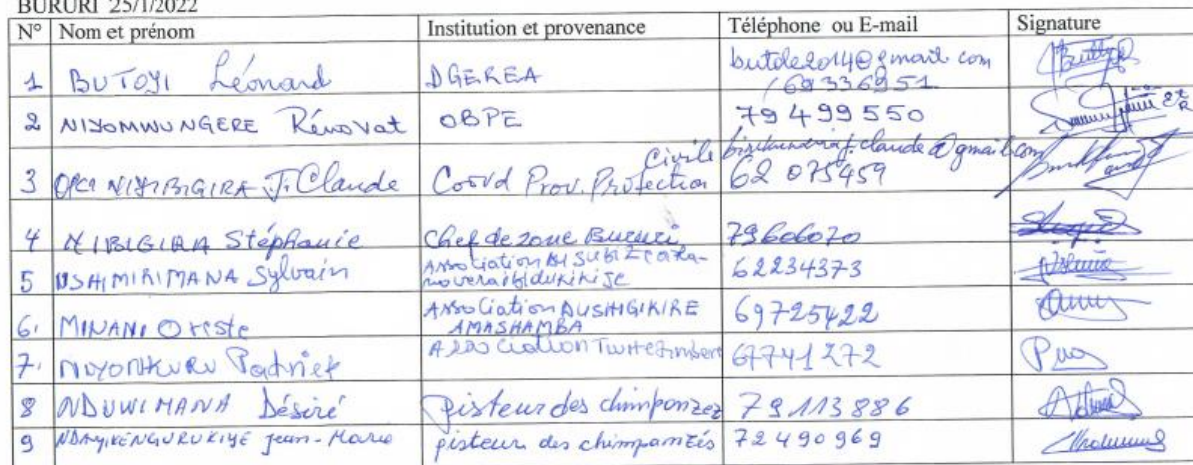 BURURI 25/1/2022
N° Nom et prénom Institution et provenance Téléphone ou E-mail Signature
1 BUTOYI Léonard DGEREA butole2014@gmail.com
/69336951
2 NIYOMWUNGERE Rénovat OBPE 79 499 550
3 OPC1 J. Claude Coord Prov. Protection Civile 62 075459
claude@gmail.com
4 NIBIGIRA Stéphanie Chef de zone Bururi 79606070
5 NSHIMIRIMANA Sylvain Association 62234373
6. MINANI Oreste Association DUSHIGIKIRE 69725422
AMASHAMBA
7. Association 67741272
8 NDUWIMANA Désiré Pisteur des chimponzez 79113886
9 NDAYIKENGURUKIYE Jean-Marie pisteur des chimpanzés 72490969